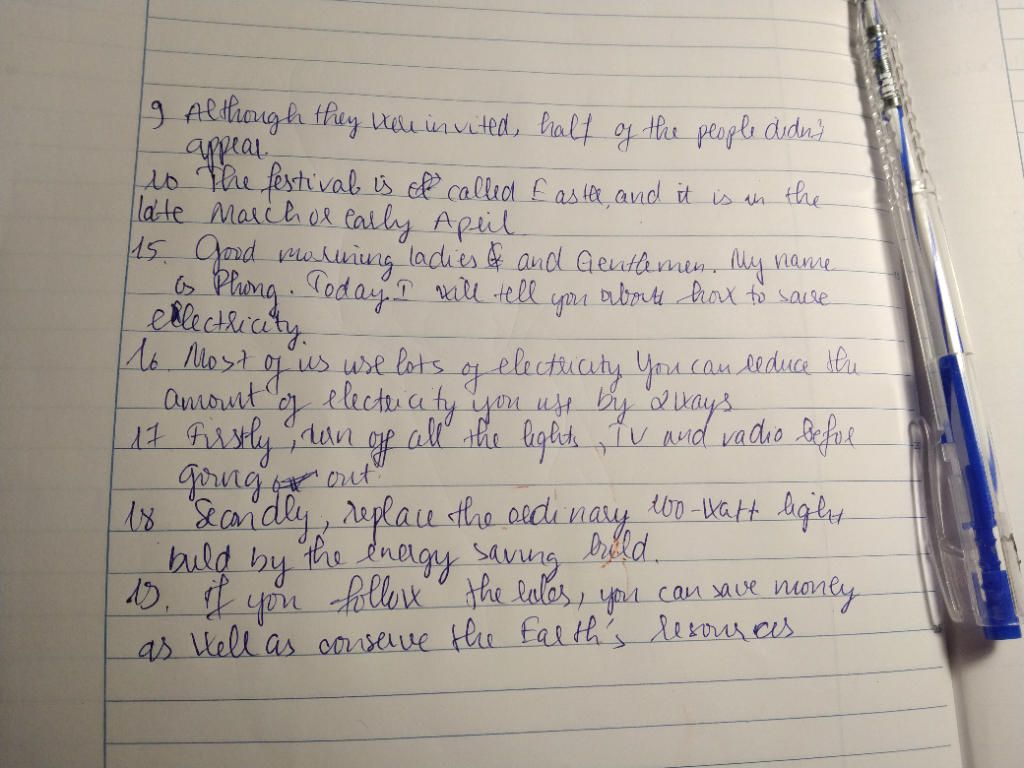 9 Although they were invited, half of the people didn't
appear
10 The festival is called Easter, and it is in the
late March or early April
15. Good morining ladies and Gentlemen. My name
is Phong. Today. I will tell you about how to save
electricity.
16. Most of us use lots of electricity You can reduce the
amount of electricity you use by 2 ways
17 Firstly, turn off all the lights, TV and radio befoe
going out.
18 Secondly, replace the ordinary 100-watt light
buld by the energy saving buld.
19. if you follow the , you can save money
as well as conserve the Earth's resources